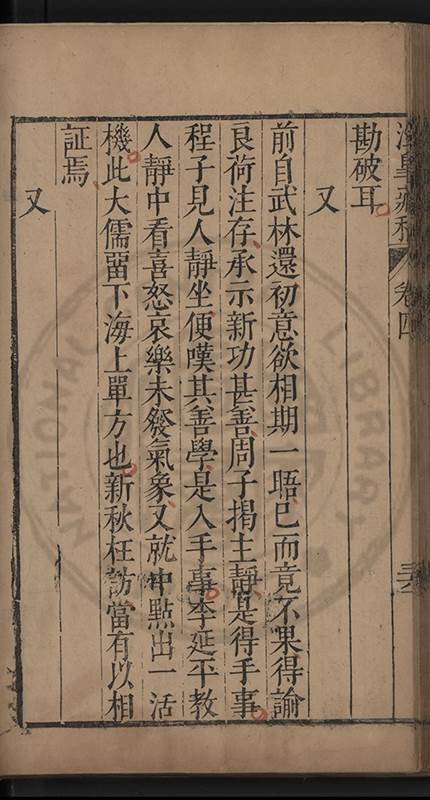 卷四
勘破耳
又
前自武林還初意欲相期一晤已而竟不果得諭
良荷注存承示新功甚善周子揭主靜是得手事
程子見人靜坐便嘆其善學是入手事李延平教
人靜中看喜怒哀樂未發氣象又就中點出一活
機此大儒畱下海上單方也新秋枉訪當有以相
証焉
又